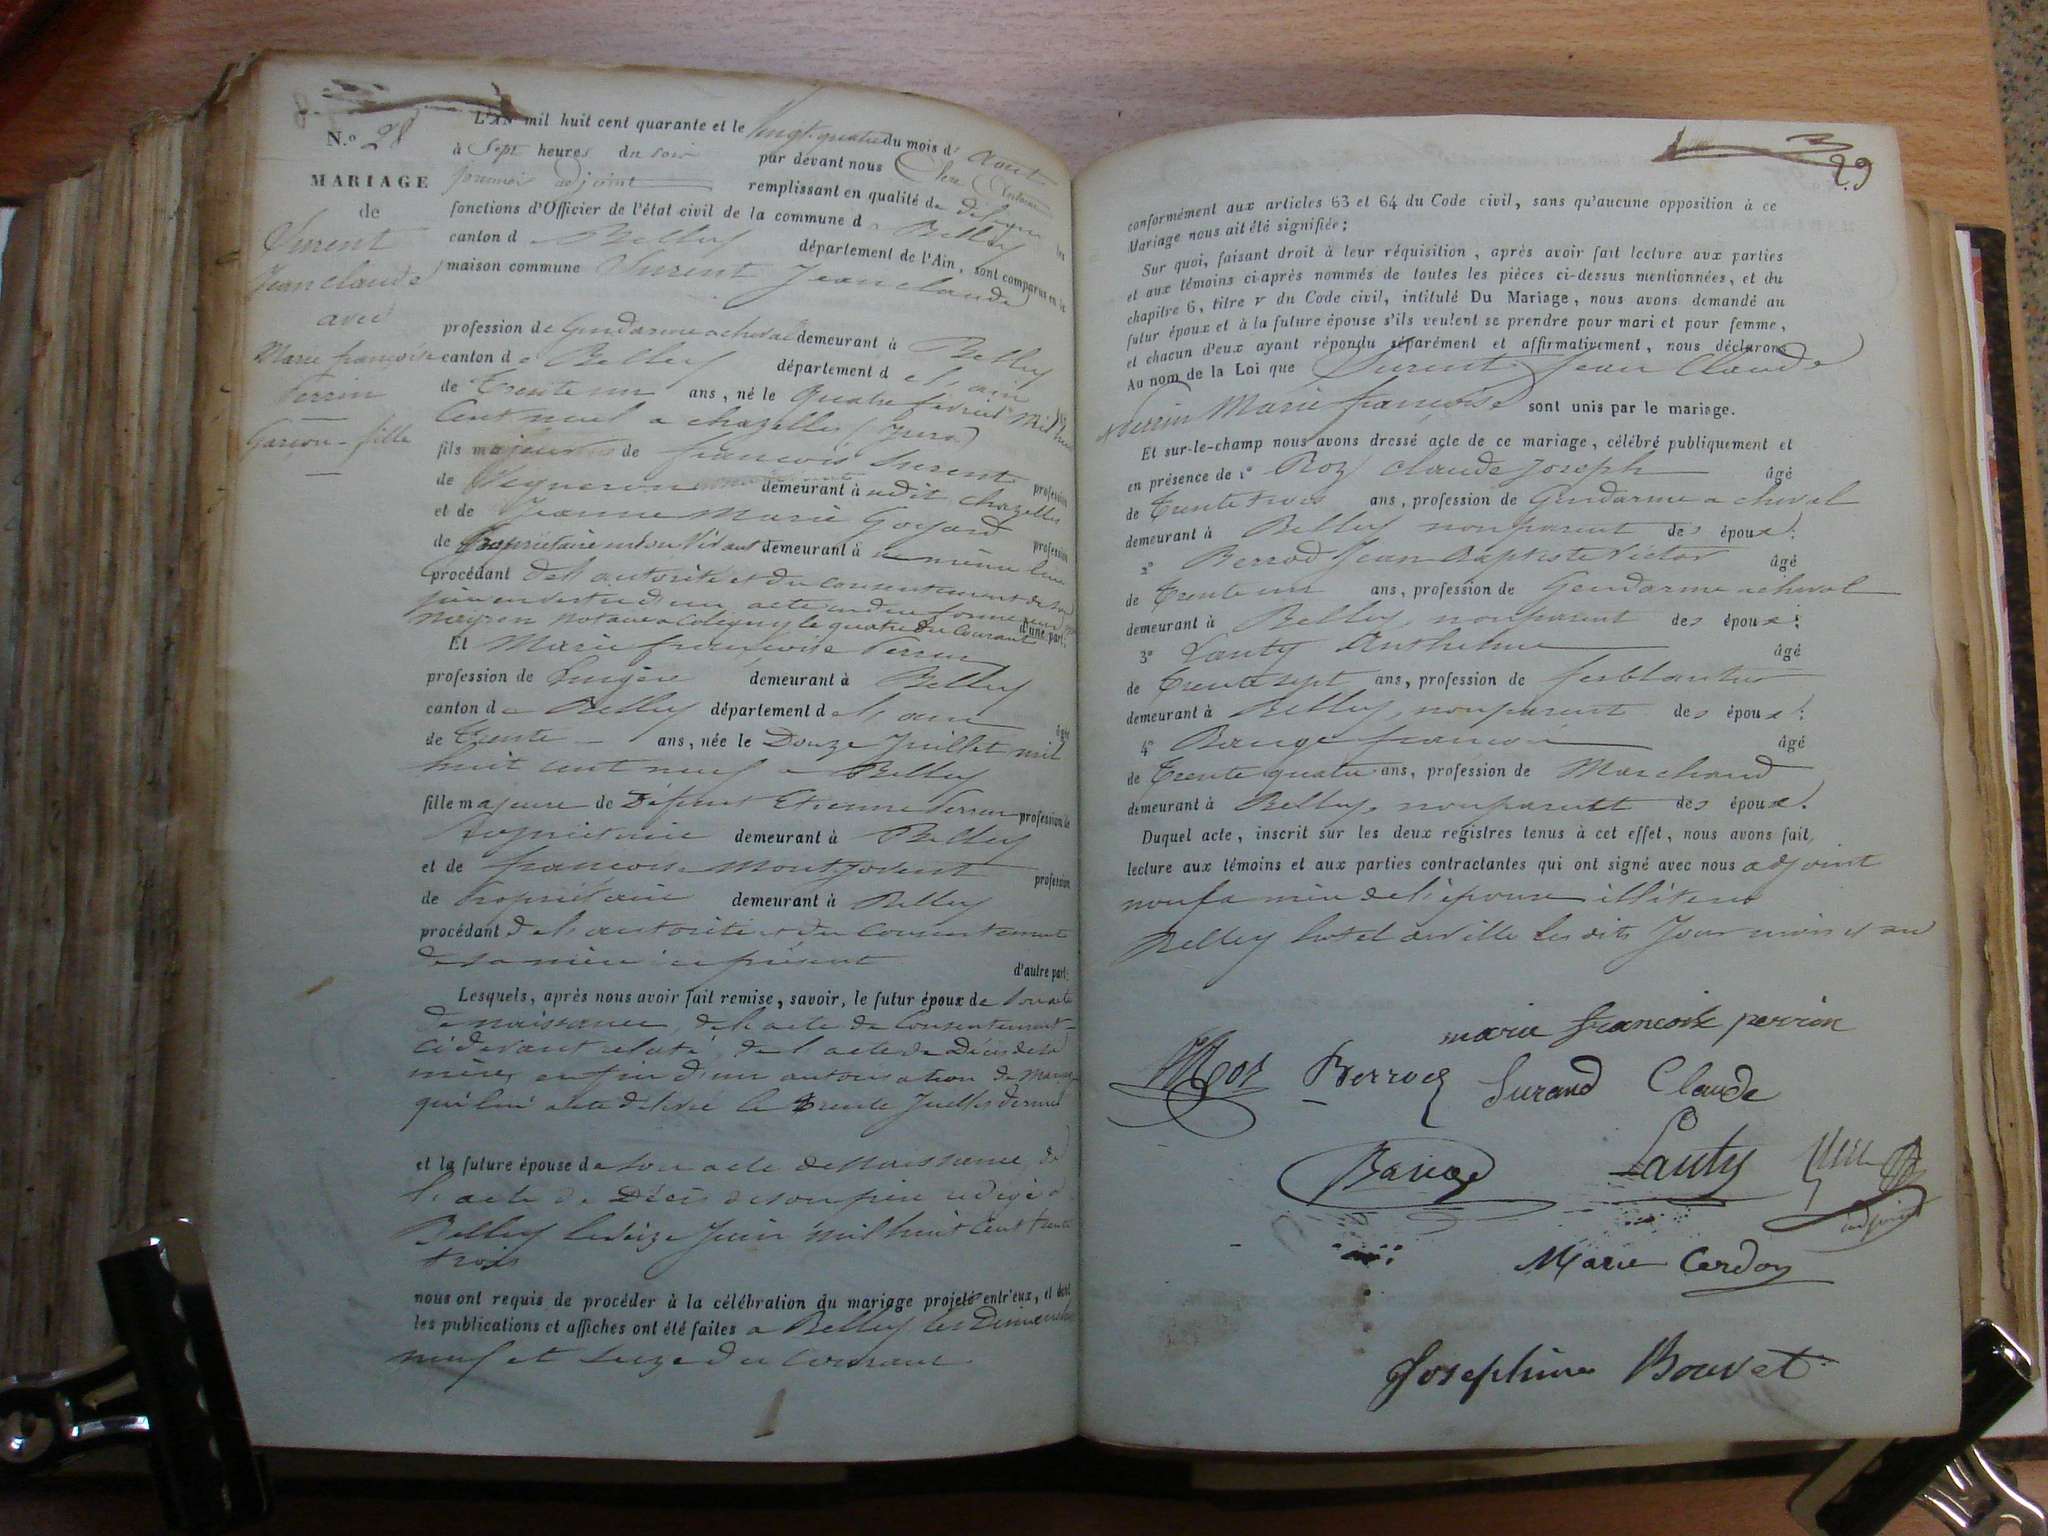 N.º 28
MARIAGE
de
Surent
Jean claude
avec
Marie françoise
Perrin
Garçon - fille
L'AN mil huit cent quarante et le Vingt-quatre du mois d' Aout
à Sept heures du soir par devant nous
premier adjoint remplissant en qualité de délégué les
fonctions d'Officier de l'état civil de la commune de Belley
canton de Belley département de l'Ain, sont comparus en la
maison commune Surent Jean claude
profession de Gendarme a cheval demeurant à Belley
canton de Belley département de l'ain
de Trente un ans, né le Quatre fevrier Mil huit
Cent neuf a chazelles (Jura)
fils majeur de françois Surent profession
de demeurant à udit chazelles
et de Jeanne Marie Goyard profession
de Propriétaire en son Vivant demeurant à meme lieu
procédant de l'autorité et du consentement de son
père en vertu d'un acte en due forme
notaire a Coligny le quatre du Courant d'une part:
Et Marie françoise Perrin
profession de Lingère demeurant à Belley
canton de Belley département de l'ain âgée
de Trente ans, née le Douze Juillet mil
huit cent neuf a Belley
fille majeure de Défunt Etienne Perrin profession de
Propriétaire demeurant à Belley
et de francoise Montjovent profession
de Propriétaire demeurant à Belley
procédant de l'autorité et du consentement
de sa mère ici présent d'autre part:
Lesquels, après nous avoir fait remise, savoir, le futur époux de son acte
de naissance, de l'acte de Consentement
ci devant relaté, de l'acte de Décès de sa
mère, enfin d'une autorisation de Mariage
qui lui a ete delivré le trente Juillet dernier
et la future épouse de son acte de Naissance, de
l'acte de Décès de son père redigé a
Belley le seize Juin mil huit Cent trente
trois
nous ont requis de procéder à la célébration du mariage projeté entr'eux, et dont
les publications et affiches ont été faites a Belley les Dimanches
neuf et seize du Courant
29
conformément aux articles 63 et 64 du Code civil, sans qu'aucune opposition à ce
Mariage nous ait été signifiée;
Sur quoi, faisant droit à leur réquisition, après avoir fait lecture aux parties
et aux témoins ci-après nommés de toutes les pièces ci-dessus mentionnées, et du
chapitre 6, titre v du Code civil, intitulé Du Mariage, nous avons demandé au
futur époux et à la future épouse s'ils veulent se prendre pour mari et pour femme,
et chacun d'eux ayant répondu séparément et affirmativement, nous déclarons
Au nom de la Loi que Surent Jean Claude
Perrin Marie françoise sont unis par le mariage.
Et sur-le-champ nous avons dressé acte de ce mariage, célébré publiquement et
en présence de 1º Roz Claude Joseph âgé
de Trente trois ans, profession de Gendarme a cheval
demeurant à Belley non parent des époux;
2º Berrod Jean Baptiste Victor âgé
de Trente un ans, profession de Gendarme a cheval
demeurant à Belley, non parent des époux;
3º Lauty Anthelme âgé
de Trente sept ans, profession de ferblantier
demeurant à Belley, non parent des époux;
4º Bauge francois âgé
de Trente quatre ans, profession de Marchand
demeurant à Belley, non parent des époux.
Duquel acte, inscrit sur les deux registres tenus à cet effet, nous avons fait,
lecture aux témoins et aux parties contractantes qui ont signé avec nous adjoint
non la mère de l'épouse illiteré
Belley hotel de ville les dits Jour mois et an
marie francoise perrin
Roz Berrod Surand Claude
Bauge Lauty
adjoint
Marie Cerdon
Josephine Bouvet